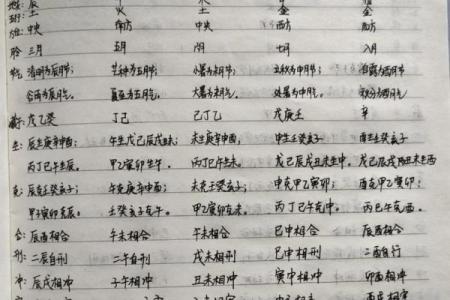 地: 辰
班: 土 火 土 金 金
位: 中央 南方 中央 西方 西方
龄 三月 五月 六月 七月 八月
气 清明为辰月节; 芒种为五月节; 小暑为月节; 立秋为申月节; 白露为酉月节;
谷雨为辰月气。 夏至为五月气。 大暑为月气。 处暑为申月气。 秋分为酉月气。
藏: 戊乙癸 丁己 己丁乙 戊庚壬 辛
生: 辰生庚辛申酉; 午生戊己辰戌丑未; 未生庚辛申酉; 申生壬癸亥子 酉生壬癸亥子
丙丁巳午生辰。 甲乙寅卯生午。 丙丁巳午生未。 戊己辰戌丑未生申。 戊己辰戌丑未生酉
克: 辰克壬癸亥子; 午克庚辛申酉; 未克壬癸亥子; 申克甲乙寅卯; 酉克甲乙寅卯;
甲乙寅卯克辰。 壬癸亥子克午。 甲乙寅卯克未。 丙丁巳午克申。 丙丁巳午克酉。
合: 辰酉相合 午未相合 午未相合 巳申相合 辰酉相合
刑: 二辰自刑 二午自刑 戌未相刑 巳申相刑 二酉自刑
冲: 辰戌相冲 子午相冲 丑未相冲 寅申相冲 卯酉相冲